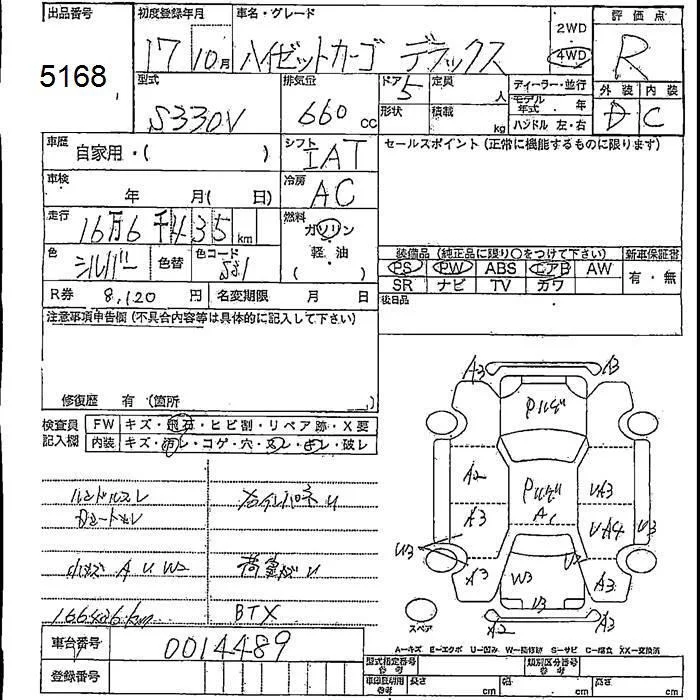 出品番号 初度登録年月 車名・グレード 評価点
5168 17 10月 ハイゼットカーゴ デラックス 2WD 4WD R
型式 排気量 ドア 定員 ディーラー・並行 外装 内装
S330V 660 cc 5 人 モデル年式 年 D C
形状 積載 kg ハンドル 左・右
車歴 自家用・( ) シフト IAT セールスポイント (正常に機能するものに限ります)
車検 年 月( 日) 冷房 AC
走行 16万6千435 km 燃料 ガソリン
色 シルバー 色替 色コード 軽・油 ( )
装備品 (純正品に限り○をつけて下さい) 新車保証書
PS PW ABS エアB AW 有・無
SR ナビ TV カワ
R券 8,120 円 名変期限 月 日 後日品
注意事項申告欄 (不具合内容等は具体的に記入して下さい)
修復歴 有 (箇所 )
検査員記入欄 FW キズ・飛石・ヒビ割・リペア跡・X要
内装 キズ・汚レ・コゲ・穴・スレ・キレ・破レ
ハンドルスレ
シートスレ
A U W
BTX
車台番号 0014489
登録番号
A3 A3
Pルーズ
A2 UA3
Pルーズ
A1
A3 UA4 U3
A3 W3 A3
U3
A2 A3
スペア
A-キズ E-エクボ U-凹み W-補修跡 S-サビ C-腐食 XX-交換済
型式指定番号 参考 類別区分番号 参考
車印証明用 参考 長さ cm 幅 cm 高さ cm